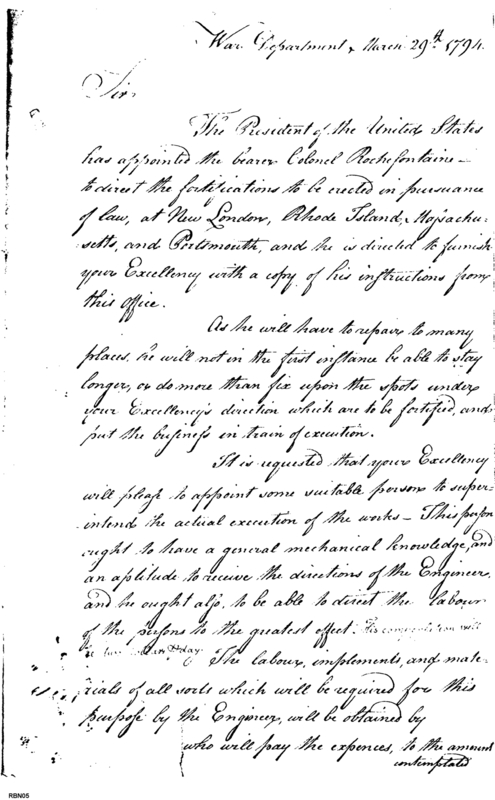 War Department, March 29th 1794.
Sir,
The President of the United States
has appointed the bearer Colonel Rochefontaine—
to direct the fortifications to be erected in pursuance
of law, at New London, Rhode Island, Massachu-
setts, and Portsmouth, and he is directed to furnish
your Excellency with a copy of his instructions from
this office.
As he will have to repair to many
places, he will not in the first instance be able to stay
longer, or do more than fix upon the spots under
your Excellency's direction which are to be fortified, and
put the business in train of execution.
It is requested that your Excellency
will please to appoint some suitable person to super-
intend the actual execution of the works— This person
ought to have a general mechanical knowledge, and
an aptitude to receive the directions of the Engineer,
and he ought also, to be able to direct the labour
of the persons to the greatest effect. His compensation will
be two dollars ⅌ day.
The labour, implements, and mate-
rials of all sorts which will be required for this
purpose by the Engineer, will be obtained by
who will pay the expences, to the amount
contemplated
RBN05